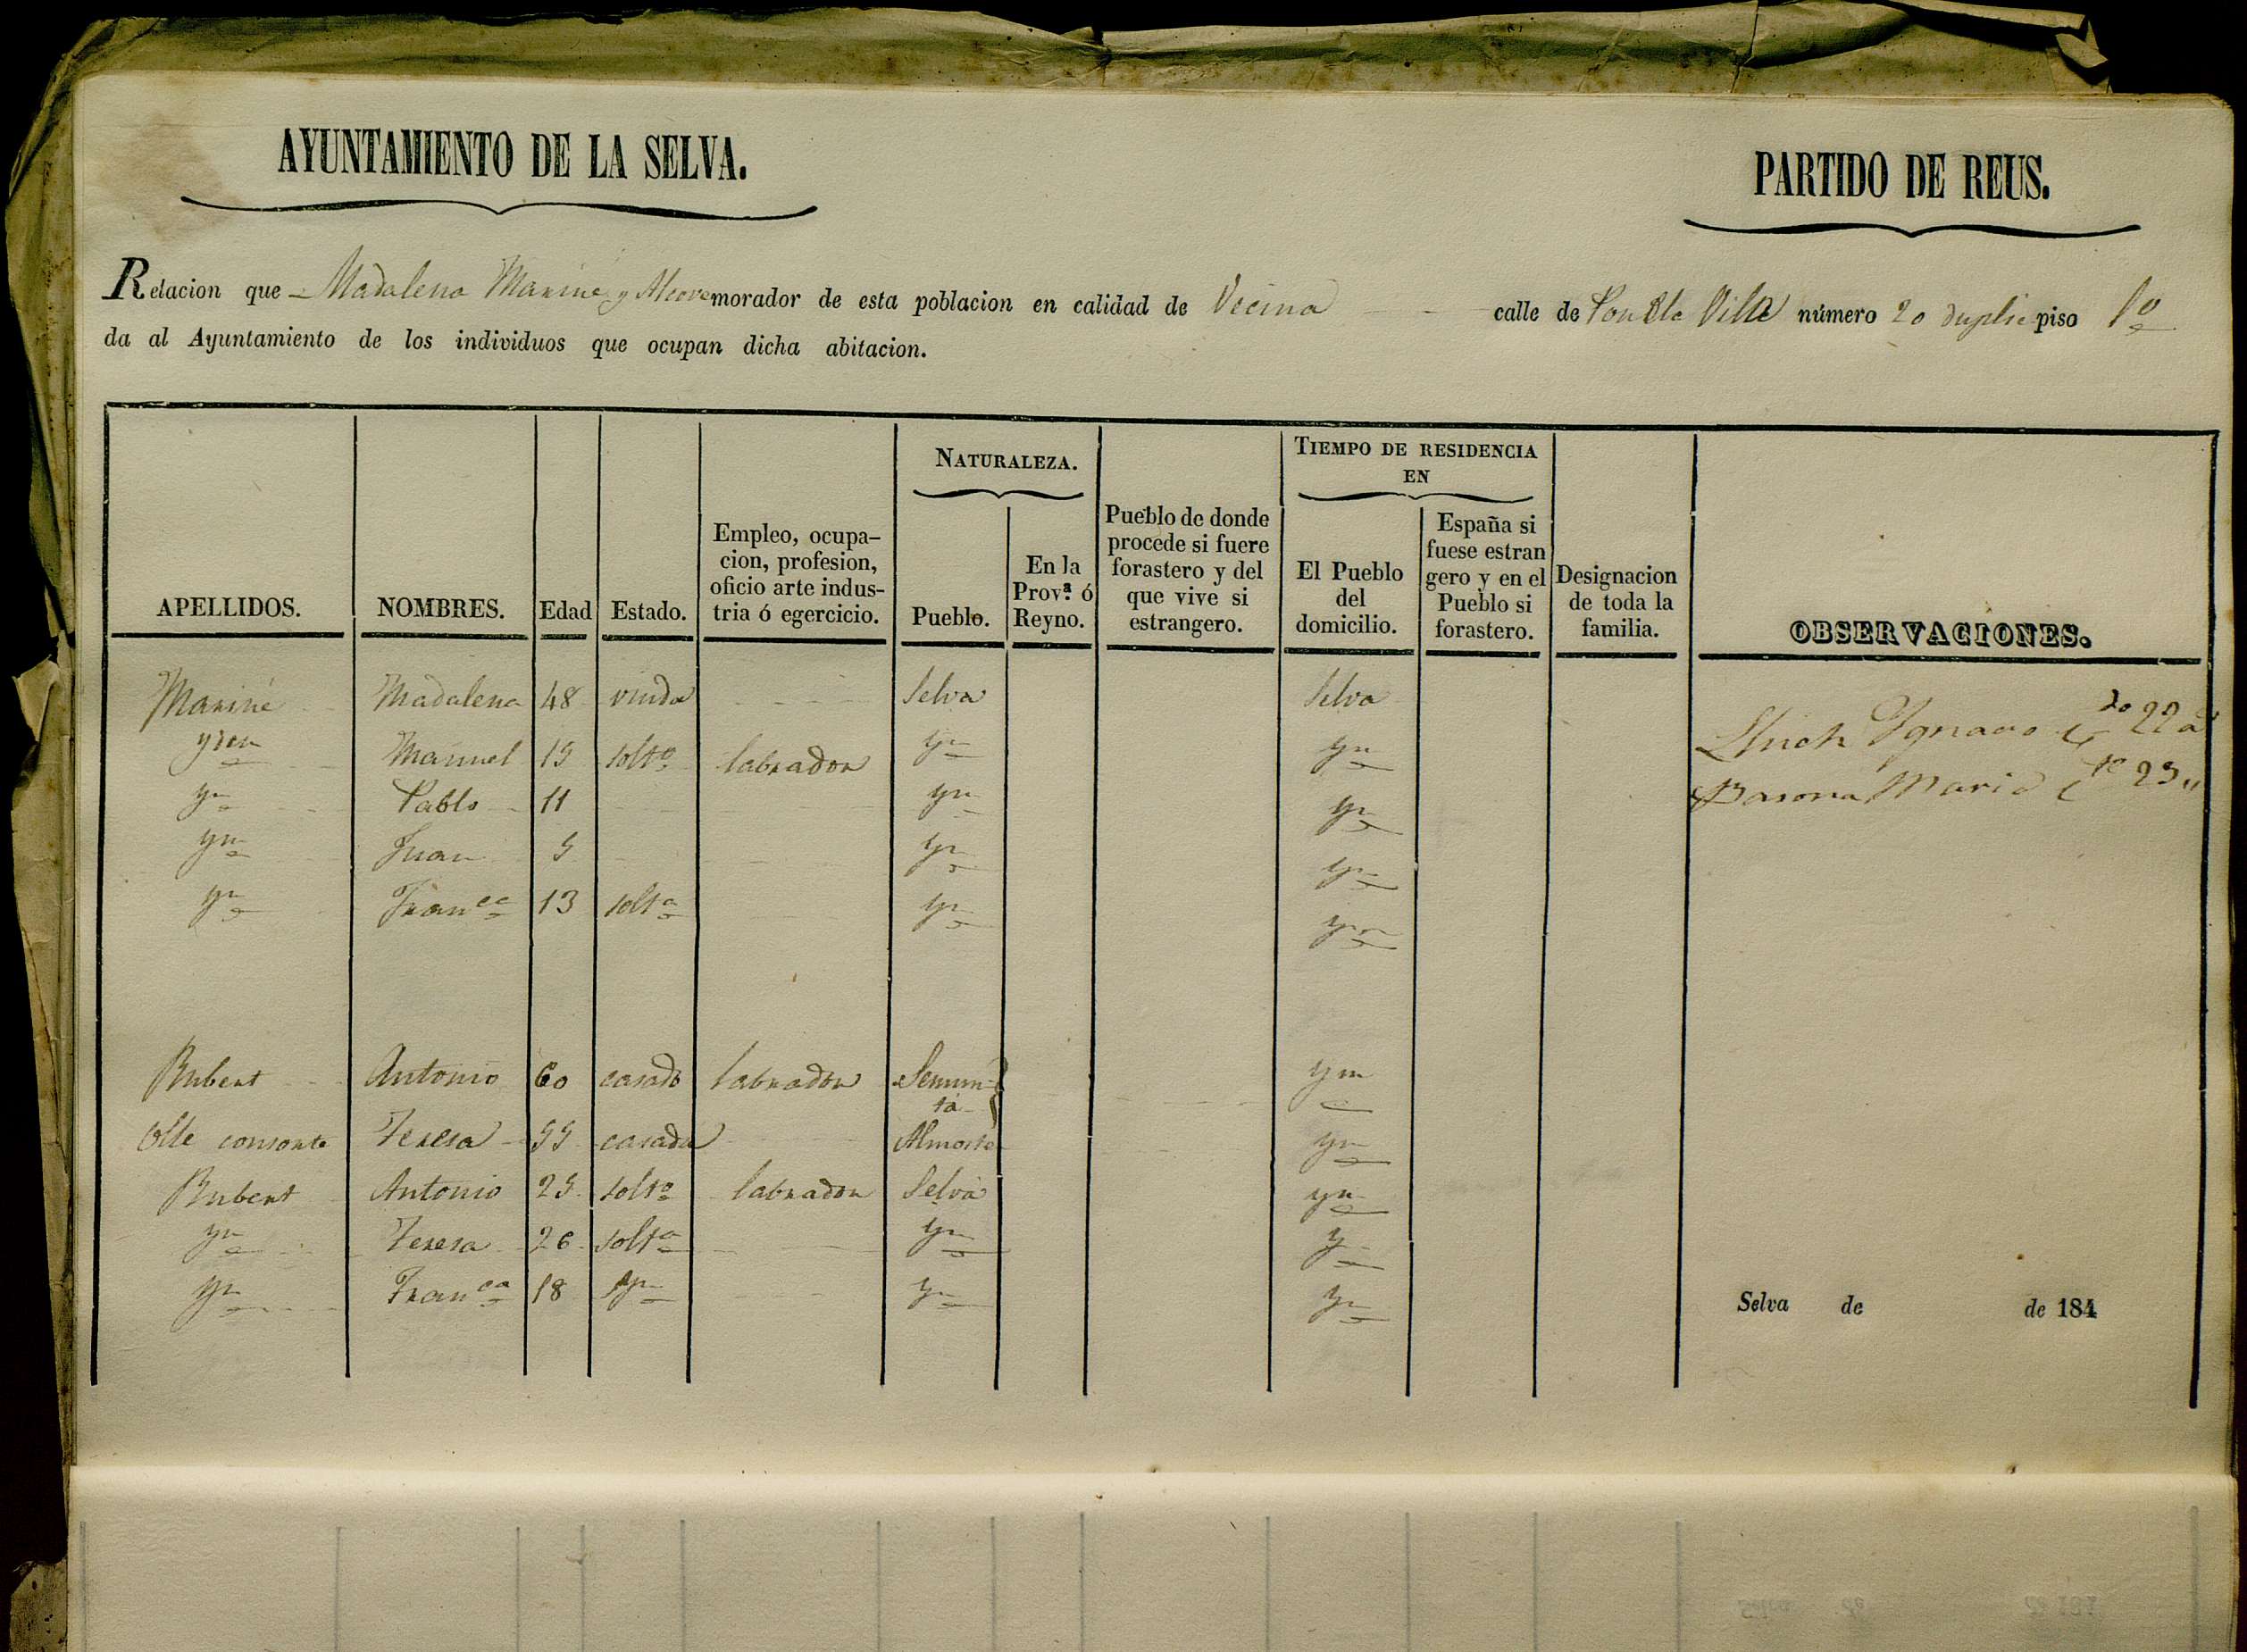 AYUNTAMIENTO DE LA SELVA.
PARTIDO DE REUS.
Relacion que Madalena Mariné y morador de esta poblacion en calidad de Vecina calle de Villa número 20 duplic piso 1º
da al Ayuntamiento de los individuos que ocupan dicha abitacion.
APELLIDOS. NOMBRES. Edad Estado. Empleo, ocupa-cion, profesion, oficio arte indus-tria ó egercicio. NATURALEZA. Pueblo. En la Prov.ª ó Reyno. Pueblo de donde procede si fuere forastero y del que vive si estrangero. TIEMPO DE RESIDENCIA EN El Pueblo del domicilio. España si fuese estran gero y en el Pueblo si forastero. Designacion de toda la familia. OBSERVACIONES.
Mariné Madalena 48 viuda Selva Selva
yden Manuel 15 solto labrador yn yn
yn Pablo 11 yn yn
yn Juan 5 yn yn
yn Franca 13 solta yn yn
Lluch Ignacio cdo 22 a
Barona Maria 23 "
Rubert Antonio 60 casado labrador yn
Olle consorte Teresa 55 casada Almoste yn
Rubert Antonio 25 solto labrador Selva yn
yn Teresa 26 solta yn y
yn Franca 18 yn yn yn
Selva de de 184